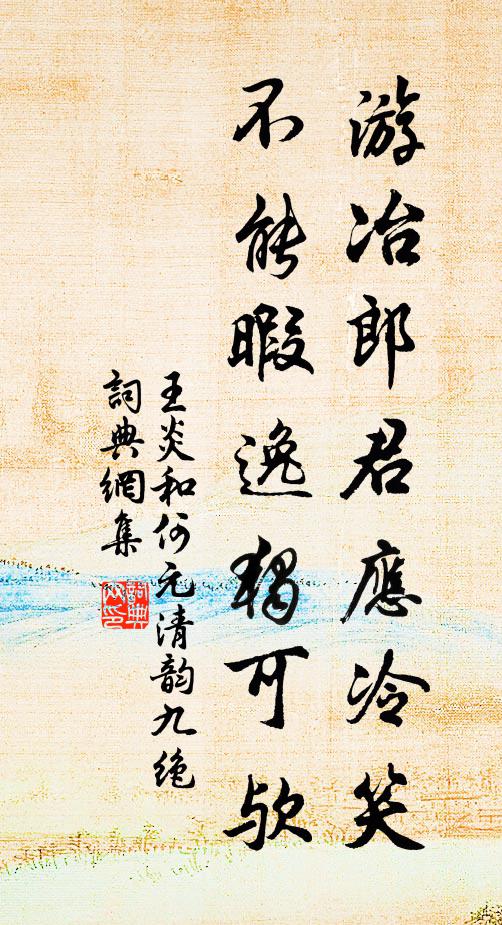 游冶郎君應冷笑
不能暇逸獨可欤
王炎和何元清韵九绝
詞典網集